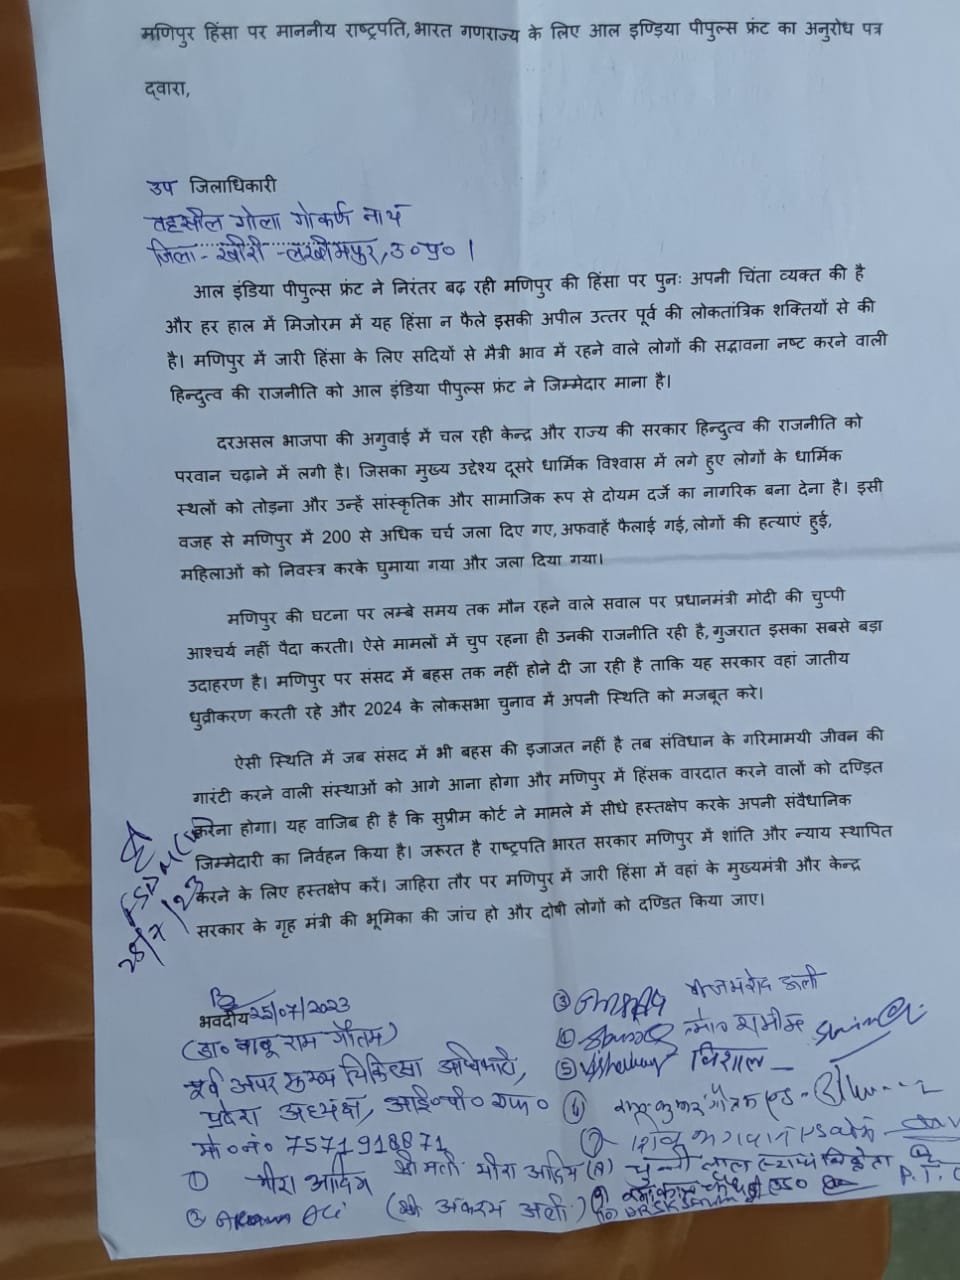 मणिपुर हिंसा पर माननीय राष्ट्रपति, भारत गणराज्य के लिए आल इण्डिया पीपुल्स फ्रंट का अनुरोध पत्र
द्वारा,
उप जिलाधिकारी
तहसील गोला गोकर्ण नाथ
जिला - खीरी - लखीमपुर, उ०प्र० ।
आल इंडिया पीपुल्स फ्रंट ने निरंतर बढ़ रही मणिपुर की हिंसा पर पुनः अपनी चिंता व्यक्त की है
और हर हाल में मिजोरम में यह हिंसा न फैले इसकी अपील उत्तर पूर्व की लोकतांत्रिक शक्तियों से की
है। मणिपुर में जारी हिंसा के लिए सदियों से मैत्री भाव में रहने वाले लोगों की सद्भावना नष्ट करने वाली
हिन्दुत्व की राजनीति को आल इंडिया पीपुल्स फ्रंट ने जिम्मेदार माना है।
दरअसल भाजपा की अगुवाई में चल रही केन्द्र और राज्य की सरकार हिन्दुत्व की राजनीति को
परवान चढ़ाने में लगी है। जिसका मुख्य उद्देश्य दूसरे धार्मिक विश्वास में लगे हुए लोगों के धार्मिक
स्थलों को तोड़ना और उन्हें सांस्कृतिक और सामाजिक रूप से दोयम दर्जे का नागरिक बना देना है। इसी
वजह से मणिपुर में 200 से अधिक चर्च जला दिए गए, अफवाहें फैलाई गई, लोगों की हत्याएं हुई,
महिलाओं को निवस्त्र करके घुमाया गया और जला दिया गया।
मणिपुर की घटना पर लम्बे समय तक मौन रहने वाले सवाल पर प्रधानमंत्री मोदी की चुप्पी
आश्चर्य नहीं पैदा करती। ऐसे मामलों में चुप रहना ही उनकी राजनीति रही है, गुजरात इसका सबसे बड़ा
उदाहरण है। मणिपुर पर संसद में बहस तक नहीं होने दी जा रही है ताकि यह सरकार वहां जातीय
ध्रुवीकरण करती रहे और 2024 के लोकसभा चुनाव में अपनी स्थिति को मजबूत करे।
ऐसी स्थिति में जब संसद में भी बहस की इजाजत नहीं है तब संविधान के गरिमामयी जीवन की
गारंटी करने वाली संस्थाओं को आगे आना होगा और मणिपुर में हिंसक वारदात करने वालों को दण्डित
करना होगा। यह वाजिब ही है कि सुप्रीम कोर्ट ने मामले में सीधे हस्तक्षेप करके अपनी संवैधानिक
जिम्मेदारी का निर्वहन किया है। जरूरत है राष्ट्रपति भारत सरकार मणिपुर में शांति और न्याय स्थापित
करने के लिए हस्तक्षेप करें। जाहिरा तौर पर मणिपुर में जारी हिंसा में वहां के मुख्यमंत्री और केन्द्र
सरकार के गृह मंत्री की भूमिका की जांच हो और दोषी लोगों को दण्डित किया जाए।
25/7/23
भवदीय 25/07/2023
(डा० बाबू राम गौतम)
पूर्व अपर मुख्य चिकित्सा अधिकारी,
प्रदेश अध्यक्ष, आई०पी०एफ०
मो०नं० 7571918871
① मीरा आदिम श्रीमती मीरा आदिम
② (श्री अकरम अली)
③ अली
④ शमीम
⑤ विशाल
⑥
⑦
(8) लाल
(9)
(10)